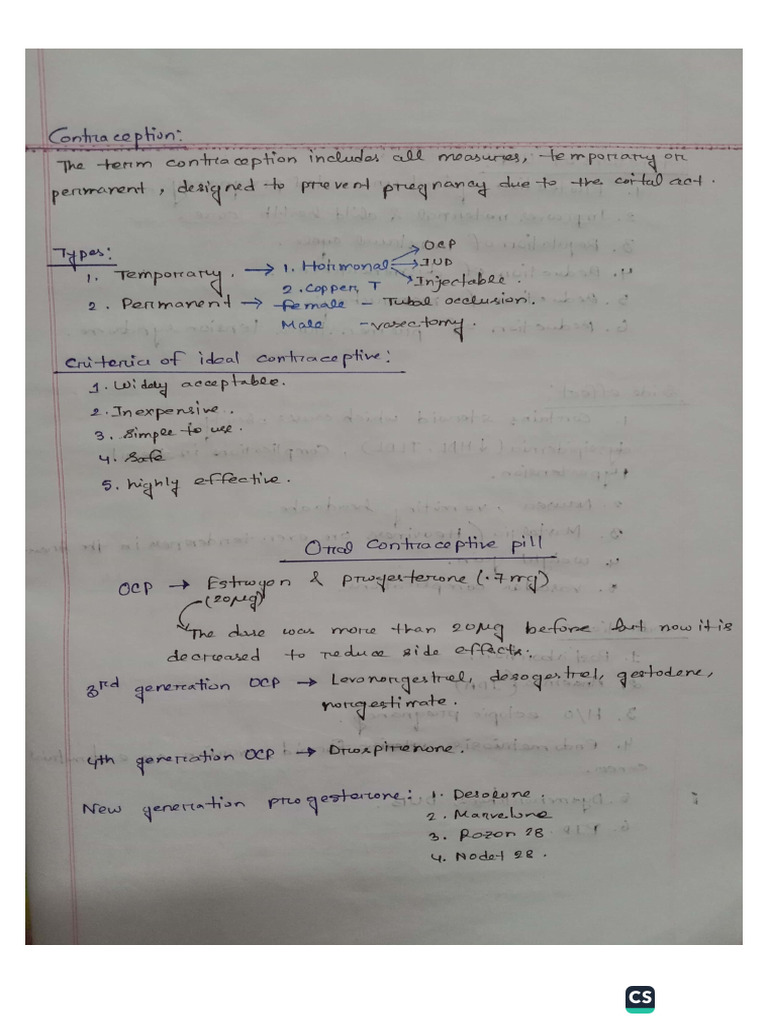 Contraception:
The term contraception includes all measures, temporary or
permanent, designed to prevent pregnancy due to the coital act.
Types:
1. Temporary. → 1. Hormonal → OCP
→ IUD
→ Injectable.
2. Copper, T
2. Permanent → female - Tubal occlusion.
Male - vasectomy.
Criteria of ideal contraceptive:
1. Widely acceptable.
2. Inexpensive.
3. Simple to use.
4. Safe
5. highly effective.
Oral Contraceptive pill
OCP → Estrogen & progesterone (.7 mg)
(20µg)
The dose was more than 20µg before but now it is
decreased to reduce side effects.
3rd generation OCP → Levonorgestrel, desogestrel, gestodene,
norgestimate.
4th generation OCP → Drospirenone.
New generation progesterone: 1. Desolone.
2. Marvelone
3. Rozon 28
4. Nodet 28.
CS